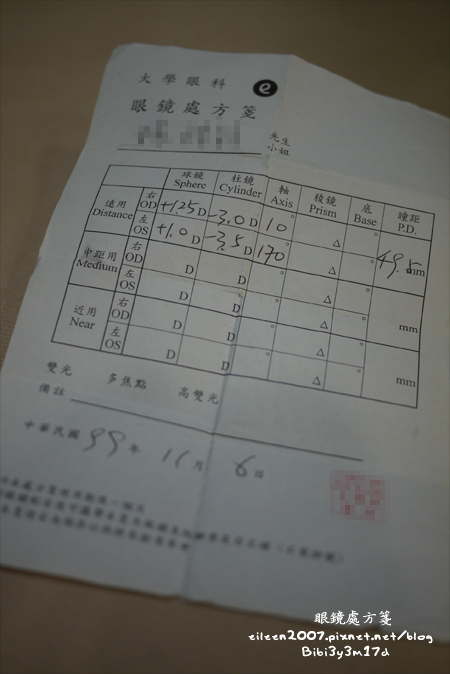 大學眼科 e
眼鏡處方箋
先生
小姐
球鏡 Sphere 柱鏡 Cylinder 軸 Axis 稜鏡 Prism 底 Base 瞳距 P.D.
遠用 Distance 右 OD +1.25 D -3.0 D 10° Δ ° 49.5 mm
左 OS +1.0 D -3.5 D 170° Δ °
中距用 Medium 右 OD D D ° Δ ° mm
左 OS D D ° Δ °
近用 Near 右 OD D D ° Δ ° mm
左 OS D D ° Δ °
雙光 多焦點 高雙光
備註
中華民國 99 年 11 月 6 日
眼鏡處方箋
eileen2007.pixnet.net/blog
Bibi3y3m17d